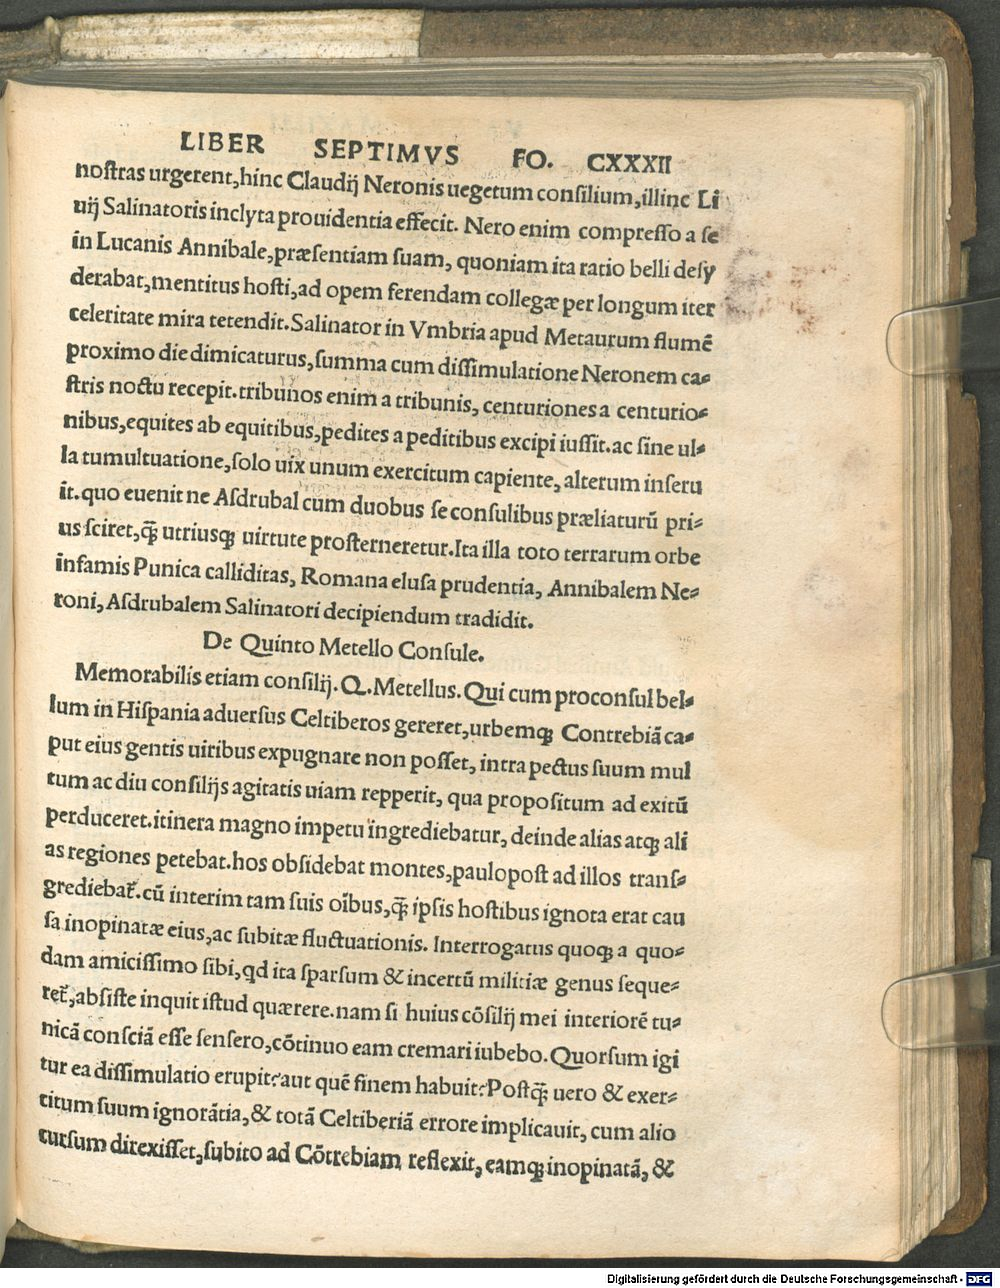 LIBER SEPTIMVS FO. CXXXII
noſtras urgerent,hinc Claudij Neronis uegetum conſilium,illinc Li
uij Salinatoris inclyta prouidentia effecit. Nero enim compreſſo a ſe
in Lucanis Annibale,præſentiam ſuam, quoniam ita ratio belli deſy
derabat,mentitus hoſti,ad opem ferendam collegæ per longum iter
celeritate mira tetendit.Salinator in Vmbria apud Metaurum flumē
proximo die dimicaturus,ſumma cum diſſimulatione Neronem ca⸗
ſtris noctu recepit.tribunos enim a tribunis, centuriones a centurio⸗
nibus,equites ab equitibus,pedites a peditibus excipi iuſſit.ac ſine ul⸗
la tumultuatione,ſolo uix unum exercitum capiente, alterum inſeru
it.quo euenit ne Aſdrubal cum duobus ſe conſulibus præliaturū pri⸗
us ſciret,q̄ utriusq; uirtute proſterneretur.Ita illa toto terrarum orbe
infamis Punica calliditas, Romana eluſa prudentia, Annibalem Ne⸗
roni, Aſdrubalem Salinatori decipiendum tradidit.
De Quinto Metello Conſule.
Memorabilis etiam conſilij. Q. Metellus. Qui cum proconſul bel⸗
lum in Hiſpania aduerſus Celtiberos gereret,urbemq; Contrebiā ca⸗
put eius gentis uiribus expugnare non poſſet, intra pectus ſuum mul
tum ac diu conſilijs agitatis uiam repperit, qua propoſitum ad exitū
perduceret.itinera magno impetu ingrediebatur, deinde alias atq; ali
as regiones petebat.hos obſidebat montes,paulopoſt ad illos tranſ⸗
grediebat᷑.cū interim tam ſuis oībus,q̄ ipſis hoſtibus ignota erat cau
ſa inopinatæ eius,ac ſubitæ fluctuationis. Interrogatus quoq; a quo⸗
dam amiciſſimo ſibi,qd ita ſparſum & incertū militiæ genus ſeque⸗
ret᷑,abſiſte inquit iſtud quærere.nam ſi huius cōſilij mei interiorē tu⸗
nicā conſciā eſſe ſenſero,cōtinuo eam cremari iubebo.Quorſum igi
tur ea diſſimulatio erupit?aut quē finem habuit?Poſtq̄ uero & exer⸗
citum ſuum ignorātia,& totā Celtiberiā errore implicauit, cum alio
curſum direxiſſet,ſubito ad Cōtrebiam reflexit, eamq; inopinatā, &
Digitalisierung gefördert durch die Deutsche Forschungsgemeinschaft - DFG